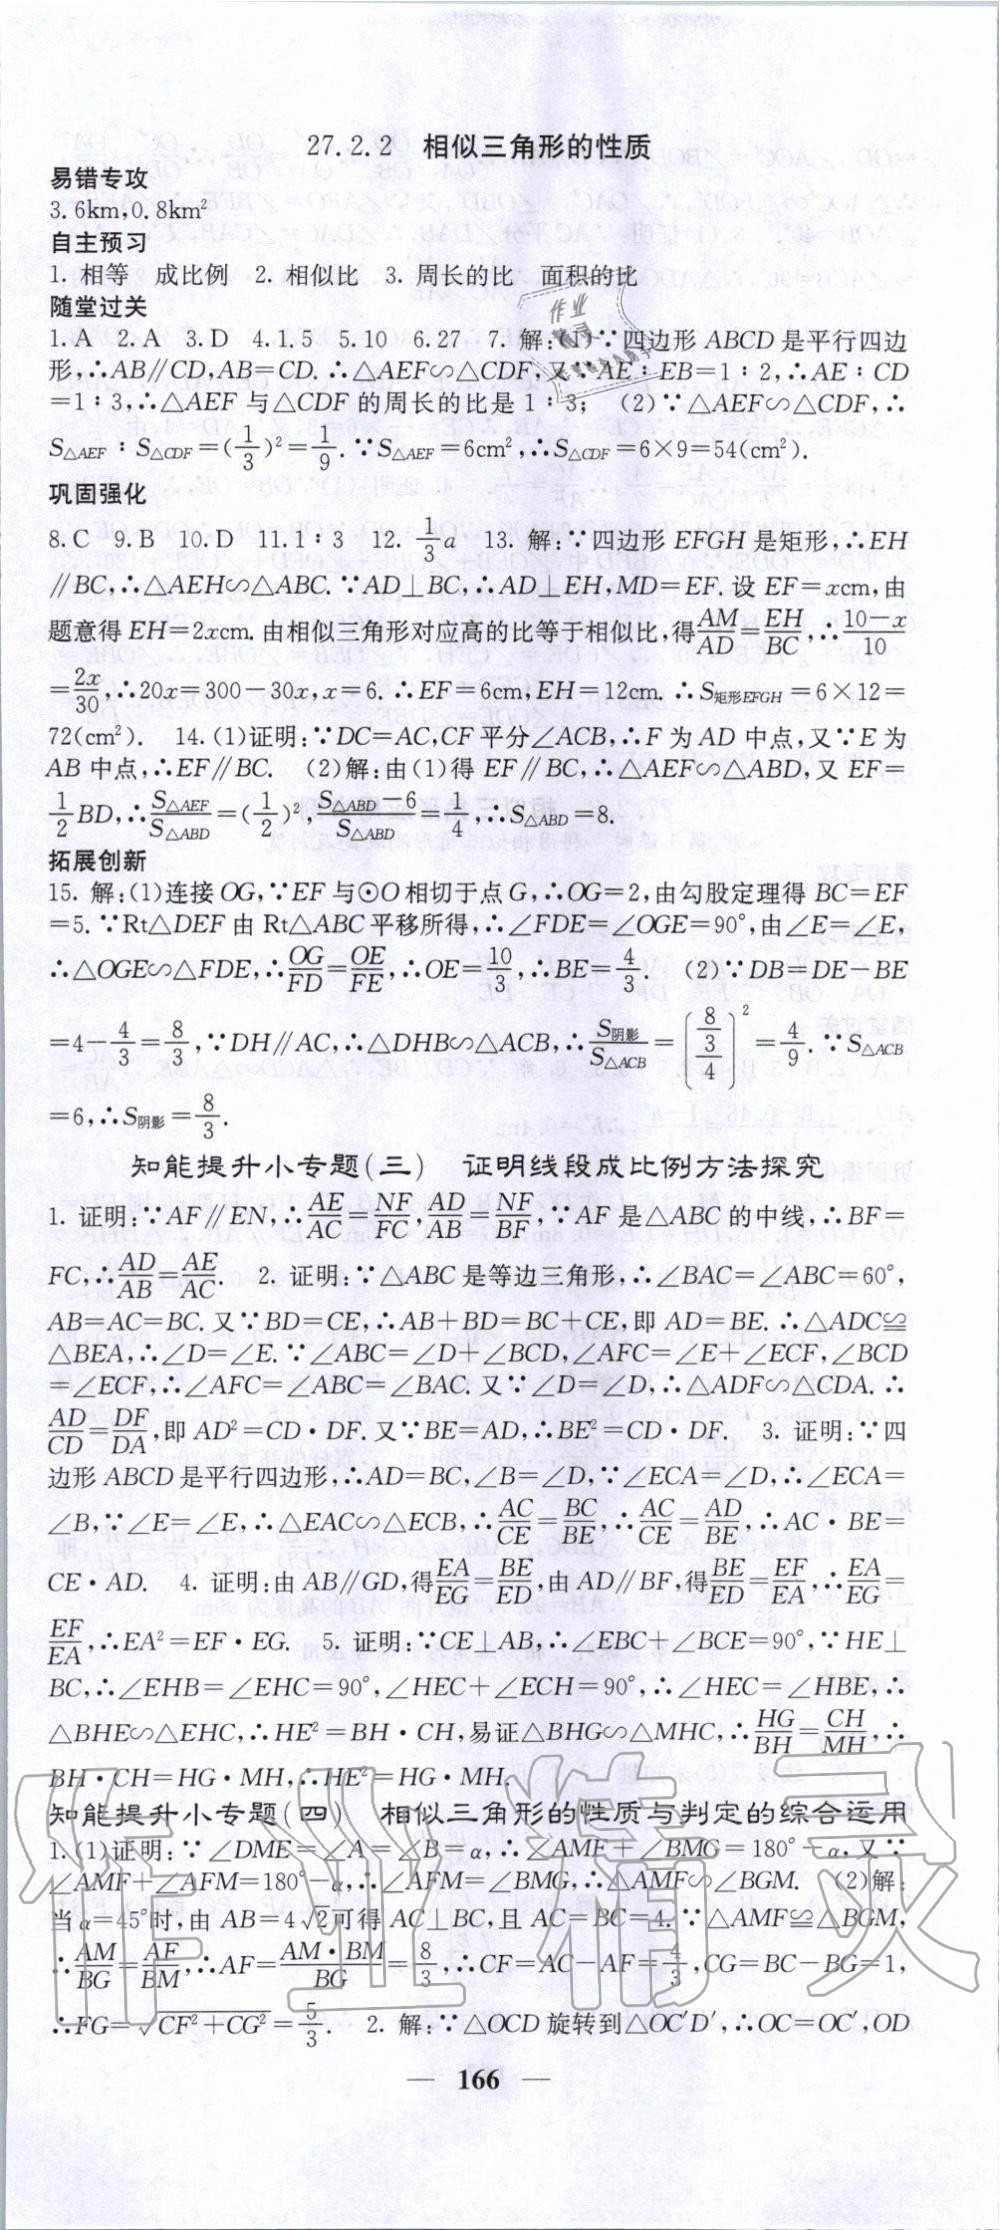 27.2.2 相似三角形的性质
易错专攻
3.6km,0.8km²
自主预习
1. 相等 成比例 2. 相似比 3. 周长的比 面积的比
随堂过关
1.A 2.A 3.D 4.1.5 5.10 6.27 7. 解:(1)∵四边形 ABCD 是平行四边
形,∴AB∥CD,AB=CD.∴△AEF∽△CDF,又∵AE∶EB=1∶2,∴AE∶CD
=1∶3,∴△AEF 与△CDF 的周长的比是 1∶3; (2)∵△AEF∽△CDF,∴
S△AEF∶S△CDF=(1/3)²=1/9.∵S△AEF=6cm²,∴S△CDF=6×9=54(cm²).
巩固强化
8.C 9.B 10.D 11.1∶3 12. 1/3 a 13. 解:∵四边形 EFGH 是矩形,∴EH
∥BC,∴△AEH∽△ABC.∵AD⊥BC,∴AD⊥EH,MD=EF.设 EF=xcm,由
题意得 EH=2xcm.由相似三角形对应高的比等于相似比,得AM/AD=EH/BC,∴(10-x)/10
=2x/30,∴20x=300-30x,x=6.∴EF=6cm,EH=12cm.∴S矩形EFGH=6×12=
72(cm²). 14.(1)证明:∵DC=AC,CF 平分∠ACB,∴F 为 AD 中点,又∵E 为
AB 中点,∴EF∥BC. (2)解:由(1)得 EF∥BC,∴△AEF∽△ABD,又 EF=
1/2 BD,∴S△AEF/S△ABD=(1/2)²,(S△ABD-6)/S△ABD=1/4,∴S△ABD=8.
拓展创新
15. 解:(1)连接 OG,∵EF 与⊙O 相切于点 G,∴OG=2,由勾股定理得 BC=EF
=5.∵Rt△DEF 由 Rt△ABC 平移所得,∴∠FDE=∠OGE=90°,由∠E=∠E,
∴△OGE∽△FDE,∴OG/FD=OE/FE,∴OE=10/3,∴BE=4/3. (2)∵DB=DE-BE
=4-4/3=8/3,∵DH∥AC,∴△DHB∽△ACB,∴S阴影/S△ACB=((8/3)/4)²=4/9.∵S△ACB
=6,∴S阴影=8/3.
知能提升小专题(三) 证明线段成比例方法探究
1. 证明:∵AF∥EN,∴AE/AC=NF/FC,AD/AB=NF/BF,∵AF 是△ABC 的中线,∴BF=
FC,∴AD/AB=AE/AC. 2. 证明:∵△ABC 是等边三角形,∴∠BAC=∠ABC=60°,
AB=AC=BC.又∵BD=CE,∴AB+BD=BC+CE,即 AD=BE.∴△ADC≌
△BEA,∴∠D=∠E.∵∠ABC=∠D+∠BCD,∠AFC=∠E+∠ECF,∠BCD
=∠ECF,∴∠AFC=∠ABC=∠BAC.又∵∠D=∠D,∴△ADF∽△CDA.∴
AD/CD=DF/DA,即 AD²=CD·DF.又∵BE=AD,∴BE²=CD·DF. 3. 证明:∵四
边形 ABCD 是平行四边形,∴AD=BC,∠B=∠D,∵∠ECA=∠D,∴∠ECA=
∠B,∵∠E=∠E,∴△EAC∽△ECB,∴AC/CE=BC/BE,∴AC/CE=AD/BE,∴AC·BE=
CE·AD. 4. 证明:由 AB∥GD,得EA/EG=BE/ED,由 AD∥BF,得BE/ED=EF/EA,∴EA/EG=
EF/EA,∴EA²=EF·EG. 5. 证明:∵CE⊥AB,∴∠EBC+∠BCE=90°,∵HE⊥
BC,∴∠EHB=∠EHC=90°,∠HEC+∠ECH=90°,∴∠HEC=∠HBE,∴
△BHE∽△EHC,∴HE²=BH·CH,易证△BHG∽△MHC,∴HG/BH=CH/MH,∴
BH·CH=HG·MH,∴HE²=HG·MH.
知能提升小专题(四) 相似三角形的性质与判定的综合运用
1.(1)证明:∵∠DME=∠A=∠B=α,∴∠AMF+∠BMG=180°-α,又∵
∠AMF+∠AFM=180°-α,∴∠AFM=∠BMG,∴△AMF∽∠BGM. (2)解:
当α=45°时,由 AB=4√2可得 AC⊥BC,且 AC=BC=4.∵△AMF≌△BGM,
∴AM/BG=AF/BM,∴AF=AM·BM/BG=8/3,∴CF=AC-AF=4/3,CG=BC-BG=1,
∴FG=√(CF²+CG²)=5/3. 2. 解:∵△OCD 旋转到△OC′D′,∴OC=OC′,OD
— 166 —
作业精灵